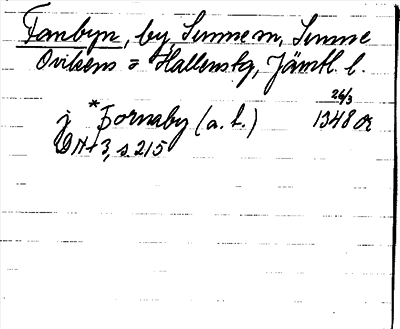 Fanbyn, by Sunne sn, Sunne
Ovikens o Hallens tg, Jämtl. l.
26/3
j *Fornaby (a. l.) 1348 or
DN 3, s. 215